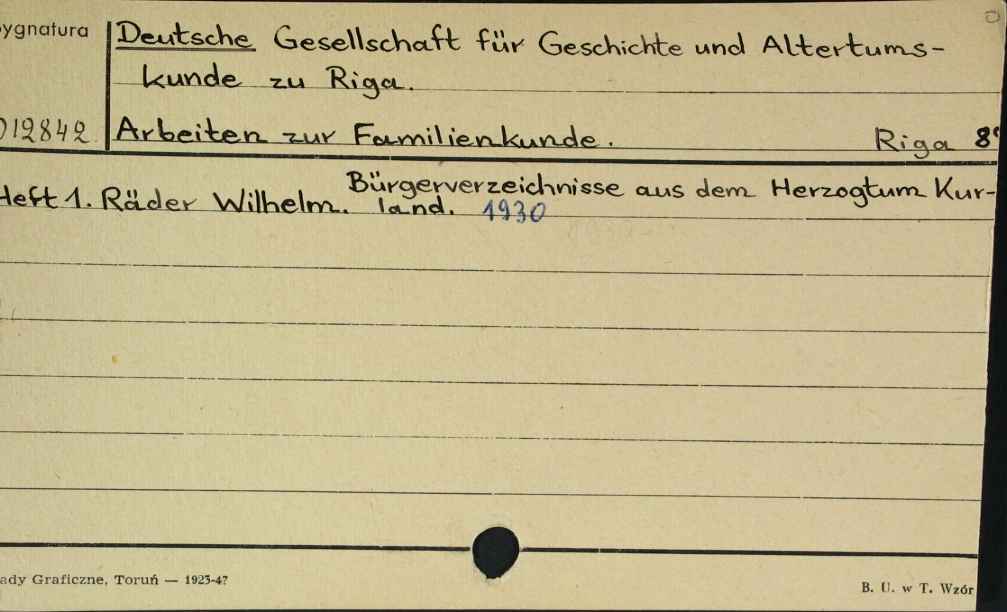 ygnatura Deutsche Gesellschaft für Geschichte und Altertums-
kunde zu Riga.
012842 Arbeiten zur Familienkunde. Riga 8°
Heft 1. Räder Wilhelm. Bürgerverzeichnisse aus dem Herzogtum Kur-
land. 1930
ady Graficzne, Toruń — 1923-47
B. U. w T. Wzór